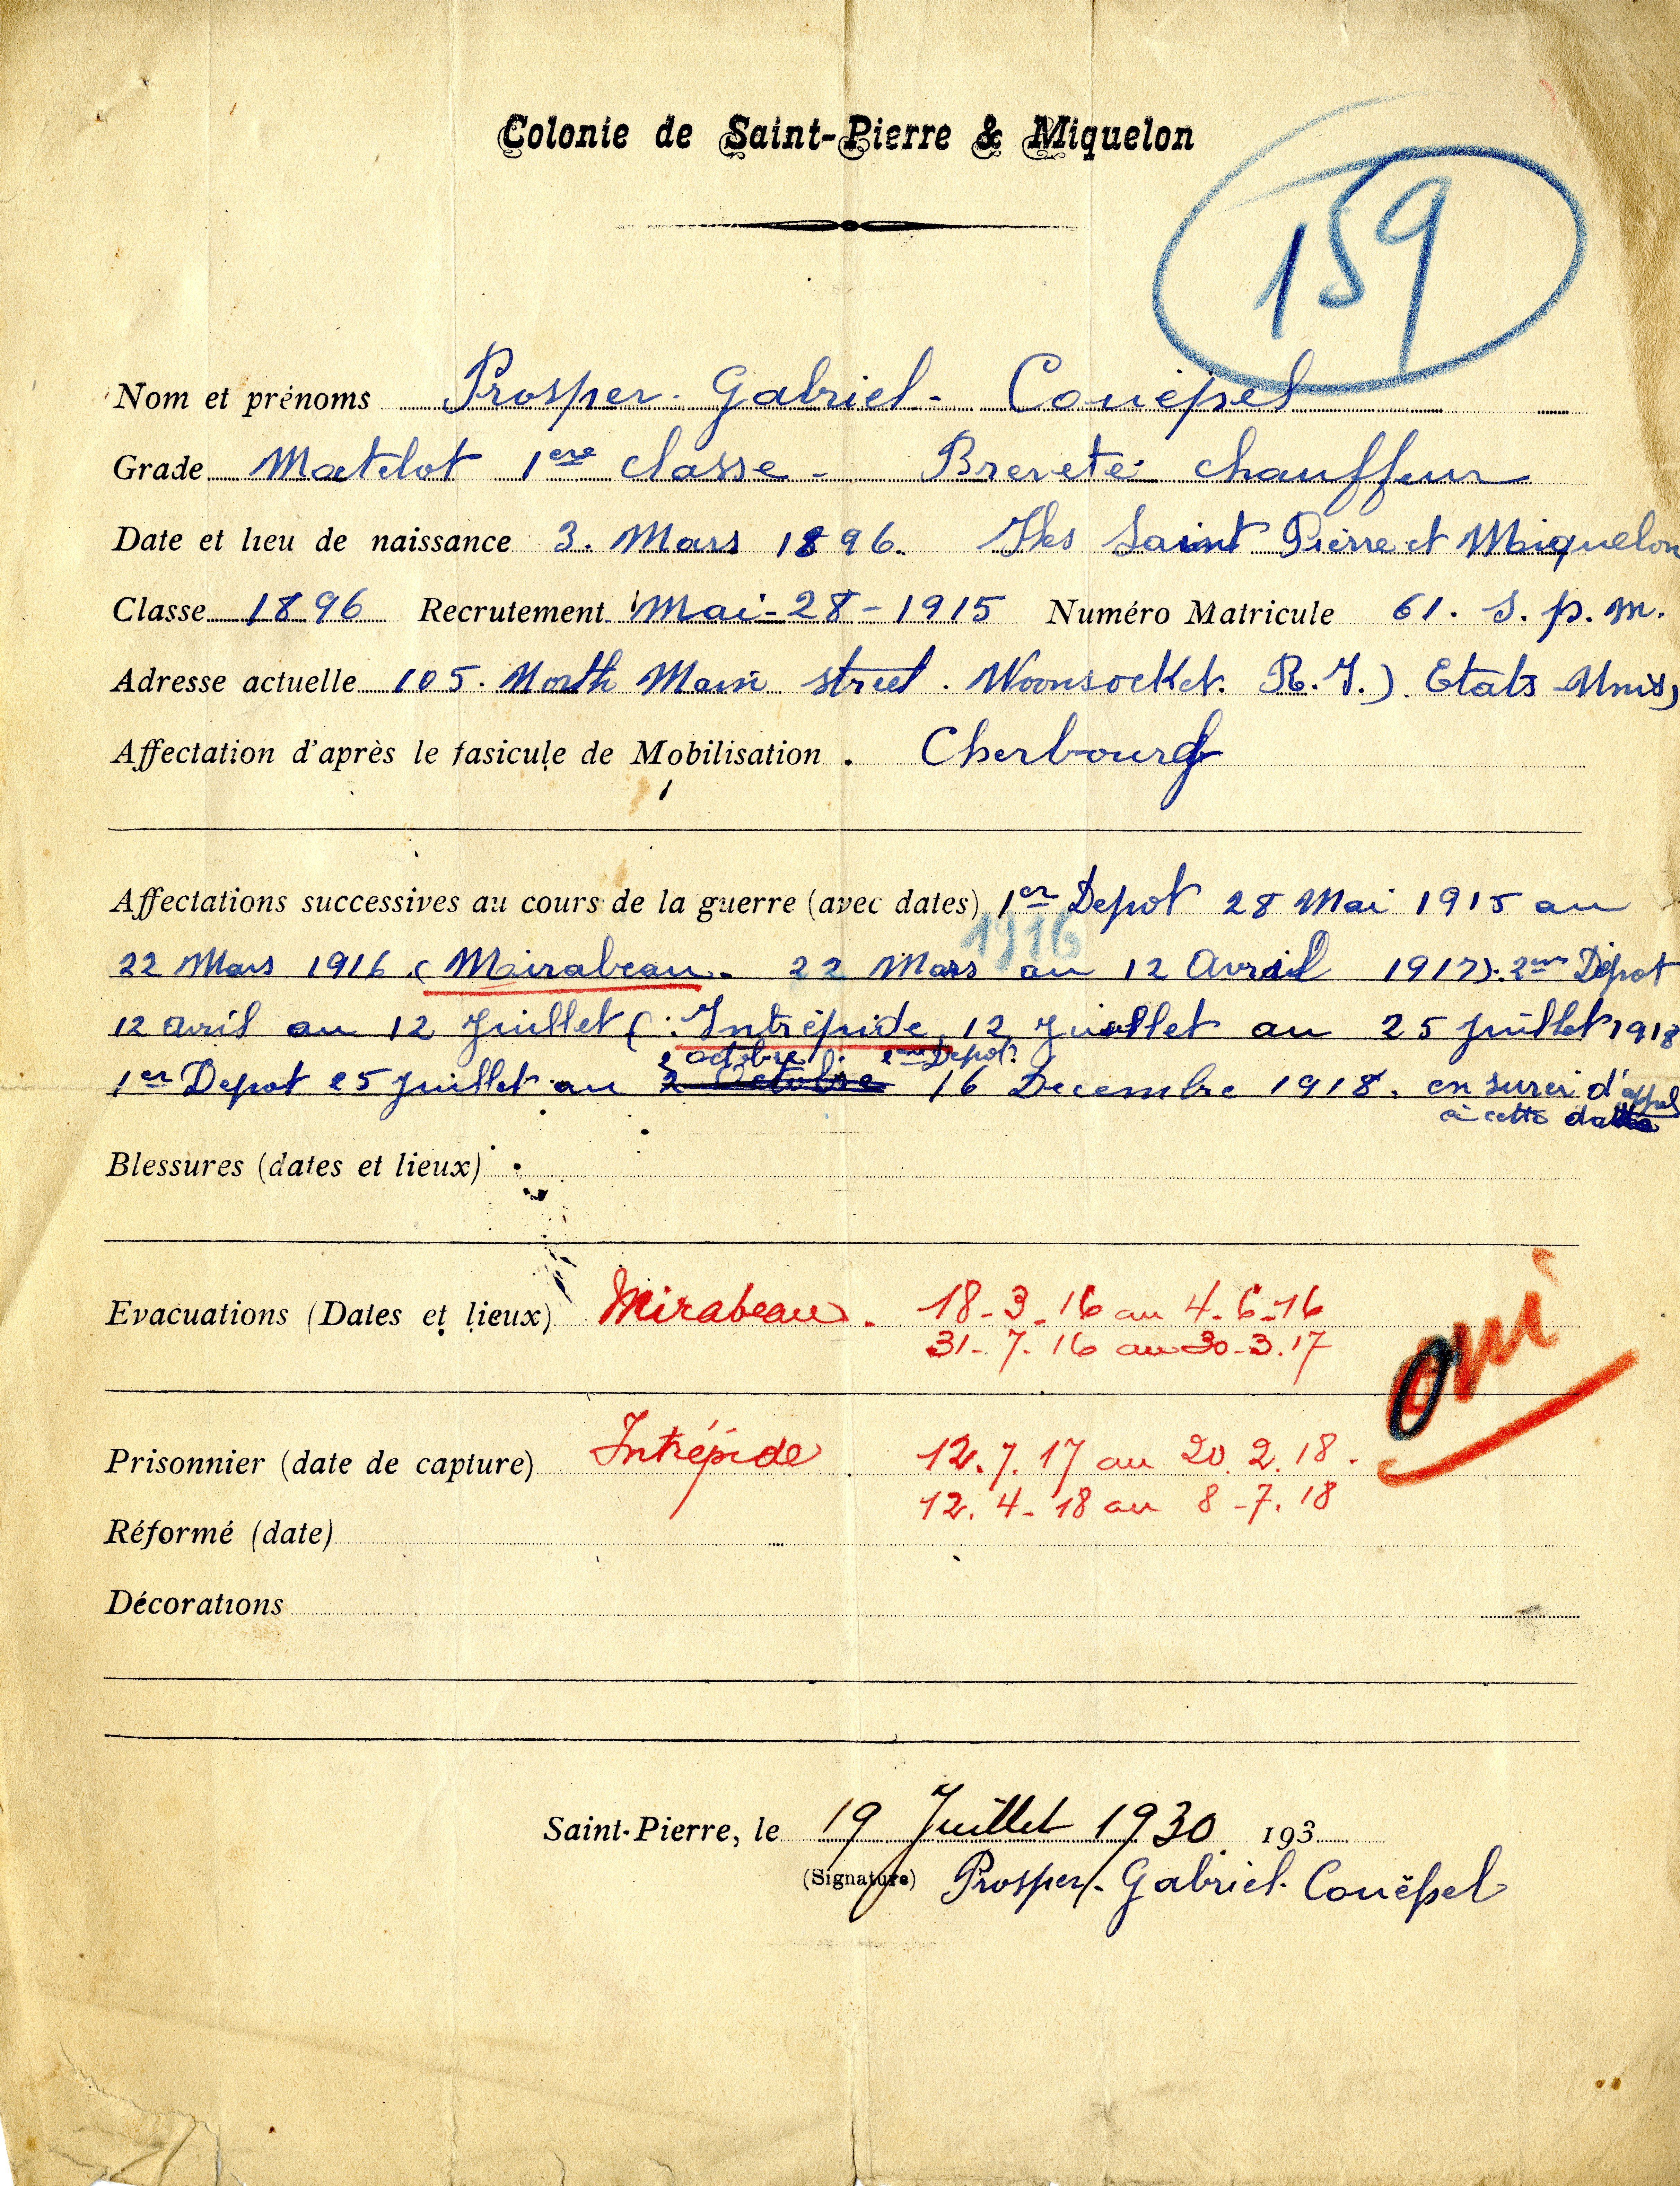 Colonie de Saint-Pierre & Miquelon
159
Nom et prénoms Prosper. Gabriel. Couëpel
Grade Matelot 1ere classe - Breveté chauffeur
Date et lieu de naissance 3. Mars 1896. Iles Saint Pierre et Miquelon
Classe 1896 Recrutement Mai-28-1915 Numéro Matricule 61. S. p. m.
Adresse actuelle 105. North Main street. Woonsocket. R.I.). Etats Unis)
Affectation d'après le fasicule de Mobilisation . Cherbourg
Affectations successives au cours de la guerre (avec dates) 1er Depot 28 Mai 1915 au
1916
22 Mars 1916 (Mirabeau. 22 Mars au 12 Avril 1917). 2em Dépot
12 avril au 12 Juillet (Intrépide, 12 Juillet au 25 Juillet 1918
2 octobre 2eme Depot
1er Depot 25 Juillet au 2 Octobre 16 Decembre 1918. en surci d'appel
à cette date
Blessures (dates et lieux)
Evacuations (Dates et lieux) Mirabeau. 18-3-16 au 4-6-16
31-7-16 au 30-3.17
oui
Prisonnier (date de capture) Intrépide 12.7.17 au 20.2.18.
12.4-18 au 8-7.18
Réformé (date)
Décorations
Saint-Pierre, le 19 Juillet 1930 193
(Signature) Prosper. Gabriel. Couëpel